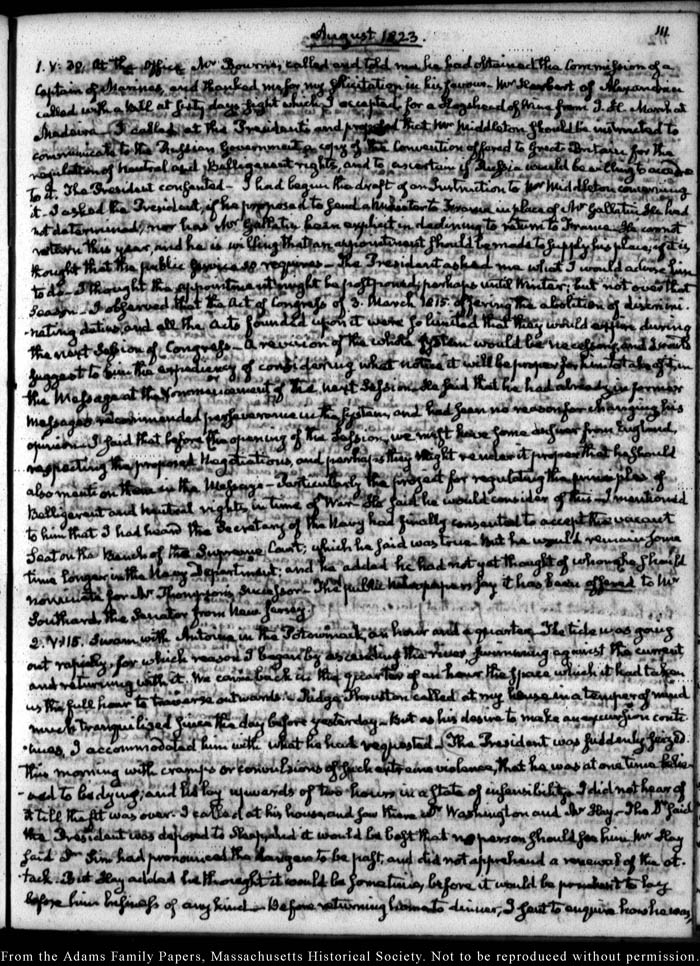 August 1823.
111
1. V: 30. At the Office Mr Bourne, called and told me he had obtained the Commission of a
Captain of Marines, and thanked me for my solicitation in his favour. Mr Herbert of Alexandria
called with a bill at sixty days sight which I accepted, for a Hogshead of Wine from J. H. March at
Madeira — I called at the Presidents and proposed that Mr Middleton should be instructed to
communicate to the Russian Government a copy of the Convention offered to Great-Britain for the
regulation of Neutral and Belligerent rights, and to ascertain if Russia would be willing to accede
to it. The President consented — I had begun the draft of an Instruction to Mr Middleton concerning
it. I asked the President, if he proposed to send a Minister to France in place of Mr Gallatin. He had
not determined; nor has Mr Gallatin been explicit in declining to return to France. He cannot
return this year, and he is willing that an appointment should be made to supply his place, if it is
thought that the public service so requires — The President asked me what I would advise him
to do. I thought the appointment might be postponed; perhaps until Winter; but not over that
Season — I observed that the Act of Congress of 3. March 1815. offering the abolition of discrimi-
-nating duties, and all the Acts founded upon it were so limited that they would expire during
the next Session of Congress — A revision of the whole System would be necessary, and I wished to
suggest to him the expediency of considering what notice it will be proper for him to take of it, in
the Message at the Commencement of the next Session. He said that he had already in former
Messages recommended perseverance in the System, and had seen no reason for changing his
opinion — I said that before the opening of the Session, we might have some answer from England,
respecting the proposed Negotiations, and perhaps they might render it proper that he should
also mention them in the Message — Particularly the project for regulating the principles of
Belligerent and Neutral rights, in time of War. He said he would consider of this — I mentioned
to him that I had heard the Secretary of the Navy had finally consented to accept the vacant
Seat on the Bench of the Supreme Court; which he said was true. But he would remain some
time longer in the Navy Department; and he added he had not yet thought of whom he should
nominate for Mr Thompson's successor — The public Newspapers say it has been offered to Mr
Southard, the Senator from New Jersey.
2. V: 15. Swam with Antoine in the Potowmack, an hour and a quarter. The tide was going
out rapidly, for which reason I began by ascending the river, swimming against the current
and returning with it. We came back in the quarter of an hour the space which it had taken
us the full hour to traverse outwards — Judge Thruston called at my house in a temper of mind
much tranquilized since the day before yesterday — But as his desire to make an excursion conti-
-nues, I accommodated him with what he had requested — The President was suddenly seized
this morning with cramps or convulsions of such extreme violence, that he was at one time believ-
-ed to be dying; and he lay upwards of two hours in a state of insensibility. I did not hear of
it till the fit was over. I called at his house, and saw there Dr Washington and Mr Hay — The Dr said
the President was disposed to sleep, and it would be best that no person should see him. Mr Hay
said Dr Sim had pronounced the danger to be past, and did not apprehend a renewal of the at-
-tack. But Hay added he thought it would be some time, before it would be prudent to lay
before him business of any kind — Before returning home to dinner, I sent to enquire how he was,
From the Adams Family Papers, Massachusetts Historical Society. Not to be reproduced without permission.